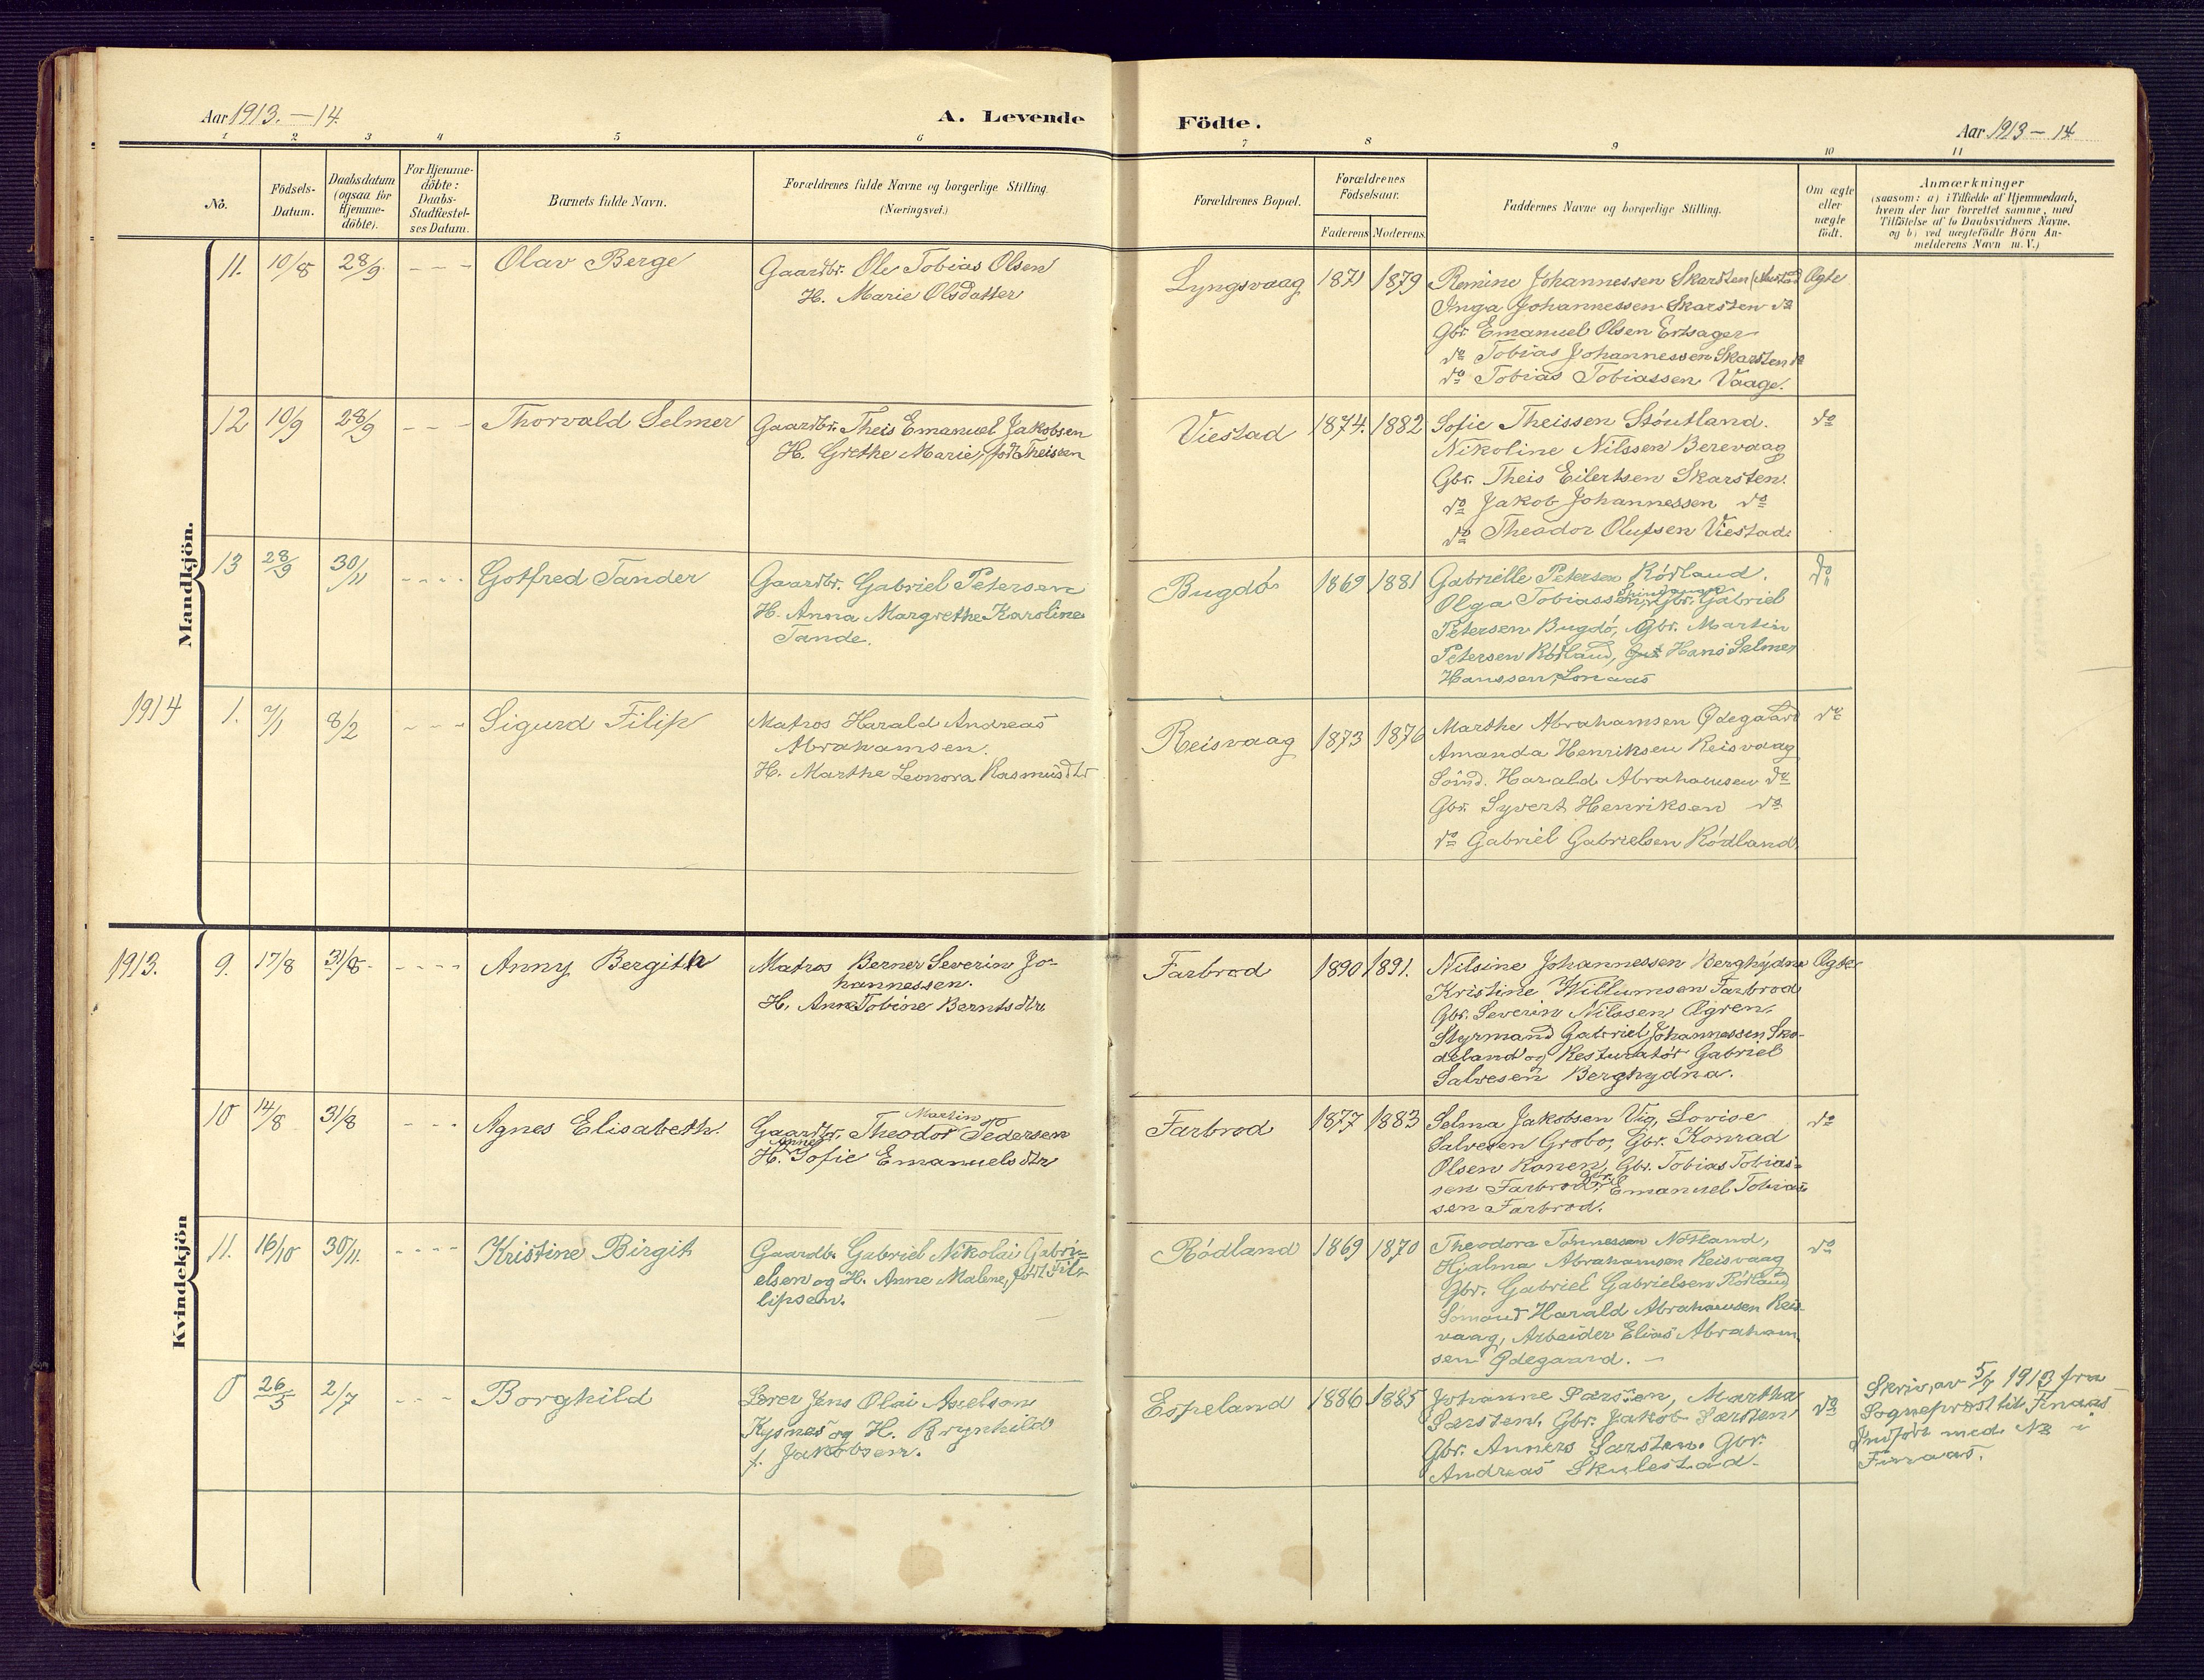 Aar 1913.—14.
A. Levende
Födte.
Aar 1913—14
1 2 3 4 5 6 7 8 9 10 11
No.
Födsels-
Datum.
Daabsdatum
(ogsaa for
Hjemme-
döbte).
For Hjemme-
döbte:
Daabs-
Stadfæstel-
ses Datum.
Barnets fulde Navn.
Forældrenes fulde Navne og borgerlige Stilling.
(Næringsvei.)
Forældrenes Bopæl.
Forældrenes
Födselsaar.
Faderens Moderens.
Faddernes Navne og borgerlige Stilling.
Om ægte
eller
uægte
födt.
Anmærkninger
(saasom: a) i Tilfælde af Hjemmedaab,
hvem der har forrettet samme, med
Tilföielse af to Daabsvidners Navne.
og b) ved uægtefödte Börn An-
melderens Navn m. V.)
Mandkjön.
11. 10/8 28/9 - - - Olav Berge
Gaardbr. Ole Tobias Olsen
H. Marie Olsdatter
Lyngsvaag 1871 1879
Remine Johannessen Skarsten Ægte
Inga Johannessen Skarsten do
Gbr. Emanuel Olsen Ertsager
do Tobias Johannessen Skarsten do
do Tobias Tobiassen Vaage.
12 10/9 28/9 - - - Thorvald Selmer
Gaardbr. Theis Emanuel Jakobsen
H. Grethe Marie, fød Theissen
Viestad 1874. 1882
Sofie Theissen Stóutland. do
Nikoline Nilssen Berevaag
Gbr. Theis Eilertsen Skarsten.
do Jakob Johannessen do
do Theodor Olufsen Viestad.
13 28/9 30/11 - - - - Gotfred Tander
Gaardbr. Gabriel Petersen
H. Anna Margrethe Karoline
Tande.
Bugdó 1869 1881
Gabrielle Petersen Ródland. do
Olga Tobiassen, Gbr. Gabriel
Petersen Bugdó, Gbr. Martin
Petersen Ródland, Hans Selmer
Hanssen, Lonaas
1914
1. 7/1 8/2 - - - Sigurd Filip
Matros Harald Andreas
Abrahamsen.
H. Marthe Leonora Rasmusdtr
Reisvaag 1873 1876
Marthe Abrahamsen Ødegaard do
Amanda Henriksen Reisvaag
Sómd. Harald Abrahamsen do
Gbr. Syvert Henriksen do
do Gabriel Gabrielsen Ródland.
Kvindekjön
1913.
9. 17/8 31/8. - - - - Anny Bergith
Matros Berner Severin Jo-
hannessen.
H. Anne Tobine Berntsdtr.
Farbrod 1890 1891.
Nilsine Johannessen Berghydna Ægte
Kristine Willumsen Farbrod
Gbr. Severin Nilssen Ægren.
Styrmand Gabriel Johannessen Sko-
deland og Resturatór Gabriel
Salvesen Berghydna.
10 14/8 31/8 - - - Agnes Elisabeth.
Martin
Gaardbr. Theodor Pedersen
Agnes
H. Sofie Emanuelsdtr
Farbrod 1877 1883
Selma Jakobsen Vig, Lovise do
Salvesen Grobo, Gbr. Konrad
Olsen Konen, Gbr. Tobias Tobias-
sen Farbrod, Gbr. Emanuel Tobias
sen Farbrod.
11. 16/10 30/11. - - - - Kristine Birgit
Gaardb. Gabriel Nikolai Gabri-
elsen og H. Anne Malene, født Fil-
lipsen.
Ródland 1869 1870
Theodora Tónnessen Nótland, do
Hjalma Abrahamsen Reisvaag
Gbr. Gabriel Gabrielsen Ródland
Sómand Harald Abrahamsen Reis-
vaag, Arbeider Elias Abraham
sen Ødegaard. —
0 26/5 2/7 - - - Borghild
Lærer Jens Olai Axelson
Kysnes og H. Brynhild
f. Jakobsen.
Espeland 1886 1885
Johanne Sarsten, Martha do
Sarsten, Gbr. Jakob Sarsten
Gbr. Anners Sarsten. Gbr.
Andreas Skulestad.
Skriv. av 5/7 1913 fra
Sogneprest til Finaas
Indfört med No i
Finaas.